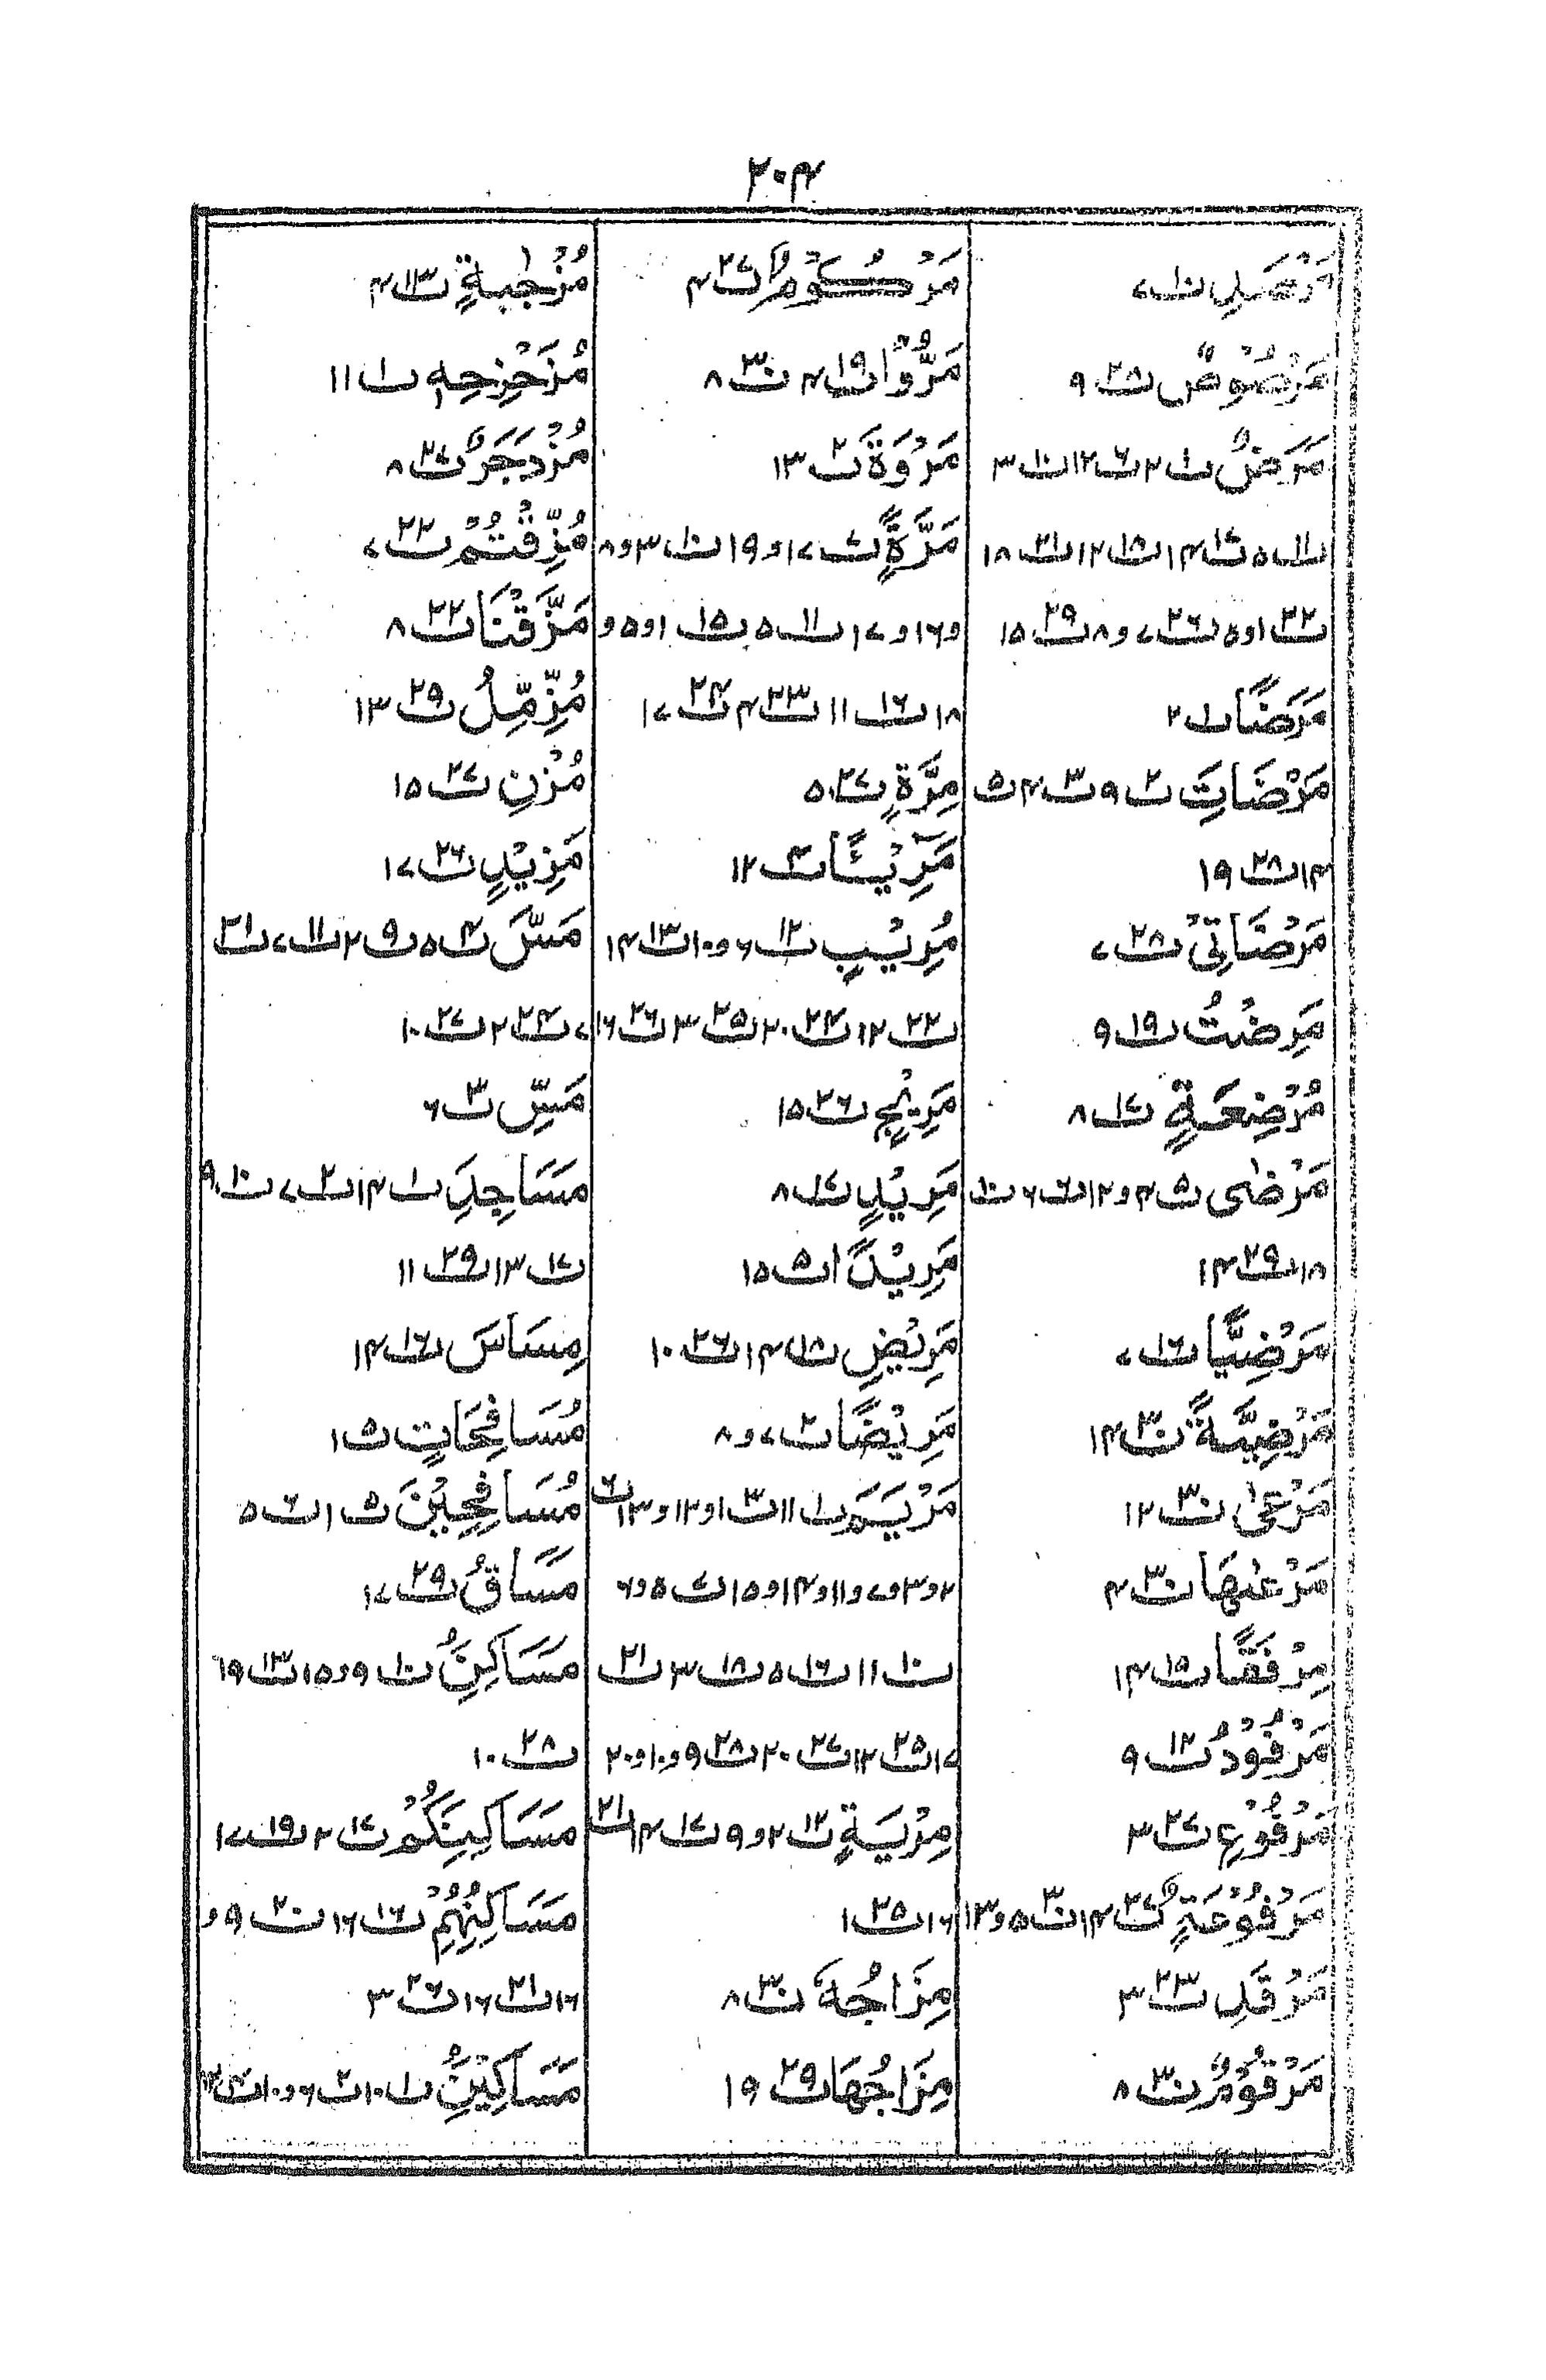 ۲۰۴
مَرْصَدٍ ت۱۰ ۷
مَرْصُوصٌ ت۲۸ ۹
مَرَضٌ ت۱ ۲ ت۶ ۱۲ ت۱۰ ۳
ت۱۱ ۵ ت۱۷ ۱۴ ت۱۸ ۱۲ ت۲۱ ۱۸
ت۲۲ ۱و۵ ت۲۶ ۷ و۸ ت۲۹ ۱۵
مَرَضًا ت۱ ۲
مَرْضَاتِ ت۲ ۹ ت۳ ۴ ت۵
۱۴ ت۲۸ ۱۹
مَرْضَاتِیْ ت۲۸ ۷
مَرِضْتُ ت۱۹ ۹
مُرْضِعَةٍ ت۱۷ ۸
مَرْضٰی ت۵ ۴ و۱۲ ت۶ ۶ ت۱۰
۱۸ ت۲۹ ۱۴
مَرْضِیًّا ت۱۶ ۷
مَرْضِیَّةً ت۳۰ ۱۴
مَرْعٰی ت۳۰ ۱۲
مَرْعٰهَا ت۳۰ ۴
مِرْفَقًا ت۱۵ ۱۴
مَرْفُوْدُ ت۱۲ ۹
مَرْفُوْعِ ت۲۷ ۳
مَرْفُوْعَةٍ ت۲۷ ۱۴ ت۳۰ ۵ و۱۳
مَرْقَدِ ت۲۳ ۳
مَرْقُوْمٌ ت۳۰ ۸
مَرْكُوْمٌ ت۲۷ ۴
مَرُّوْا ت۱۹ ۴ ت۳۰ ۸
مَرْوَةَ ت۲ ۱۳
مَرَّةٍ ت۷ ۱۷ و ۱۹ ت۱۰ ۳و۸
و۱۶ و ۱۷ ت۱۱ ۵ ت۱۵ ۱و۵و
۱۸ ت۱۶ ۱۱ ت۲۳ ۴ ت۲۴ ۱۷
مِرَّةٍ ت۲۷ ۵
مَرِیْئًا ت۴ ۱۲
مُرِیْبٍ ت۱۲ ۶ و۱۰ ت۱۳ ۱۴
ت۲۲ ۱۲ ت۲۴ ۲۰ ت۲۵ ۳ ت۲۶ ۱۶
مَرِیْجٍ ت۲۶ ۱۵
مَرِیْدٍ ت۱۷ ۸
مَرِیْدًا ت۵ ۱۵
مَرِیْضِ ت۱۸ ۱۴ ت۲۶ ۱۰
مَرِیْضًا ت۲ ۷و ۸
مَرْیَمَ ت۱ ۱۱ ت۳ ۱و۱۲ و۱۳ ت۶
۲و۳و۷ و۱۱و۱۴و۱۵ ت۷ ۵و۶
ت۱۰ ۱۱ ت۱۶ ۵ ت۱۸ ۳ ت۲۱
۱۷ ت۲۵ ۱۲ ت۲۷ ۲۰ ت۲۸ ۹و۱۰و۲۰
مِرْیَةٍ ت۱۲ ۲و ۹ ت۱۷ ۱۴ ت۲۱
۱۶ ت۲۵ ۱
مِزَاجُهٗ ت۳۰ ۸
مِزَاجُهَا ت۲۹ ۱۹
مُزْجٰىةٍ ت۱۳ ۴
مُزَحْزِحِهٖ ت۱ ۱۱
مُزْدَجَرٌ ت۲۷ ۸
مُزِّقْتُمْ ت۲۲ ۷
مَزَّقْنَا ت۲۲ ۸
مُزَّمِّلُ ت۲۹ ۱۳
مُزْنِ ت۲۷ ۱۵
مَزِیْدٍ ت۲۶ ۱۷
مَسَّ ت۴ ۵ ت۹ ۲ ت۱۱ ۷ ت۲۱
۷ ت۲۴ ۲ ت۲۷ ۱۰
مَسِّ ت۳ ۶
مَسَاجِدَ ت۱ ۱۴ ت۲ ۷ ت۱۰ ۹
ت۱۷ ۱۳ ت۲۹ ۱۱
مِسَاسَ ت۱۶ ۱۴
مُسَافِحَاتٍ ت۵ ۱
مُسَافِحِیْنَ ت۵ ۱ ت۶ ۵
مَسَاقُ ت۲۹ ۱۷
مَسَاكِنَ ت۱۰ ۹و۱۵ ت۱۳ ۱۹
ت۲۸ ۱۰
مَسَاكِنَكُمْ ت۱۷ ۲ ت۱۹ ۱۷
مَسَاكِنِهِمْ ت۱۶ ۱۶ ت۲۰ ۹ و
۱۶ ت۲۱ ۱۶ ت۲۶ ۳
مَسَاكِیْنَ ت۱ ۱۰ ت۲ ۶و۱۰